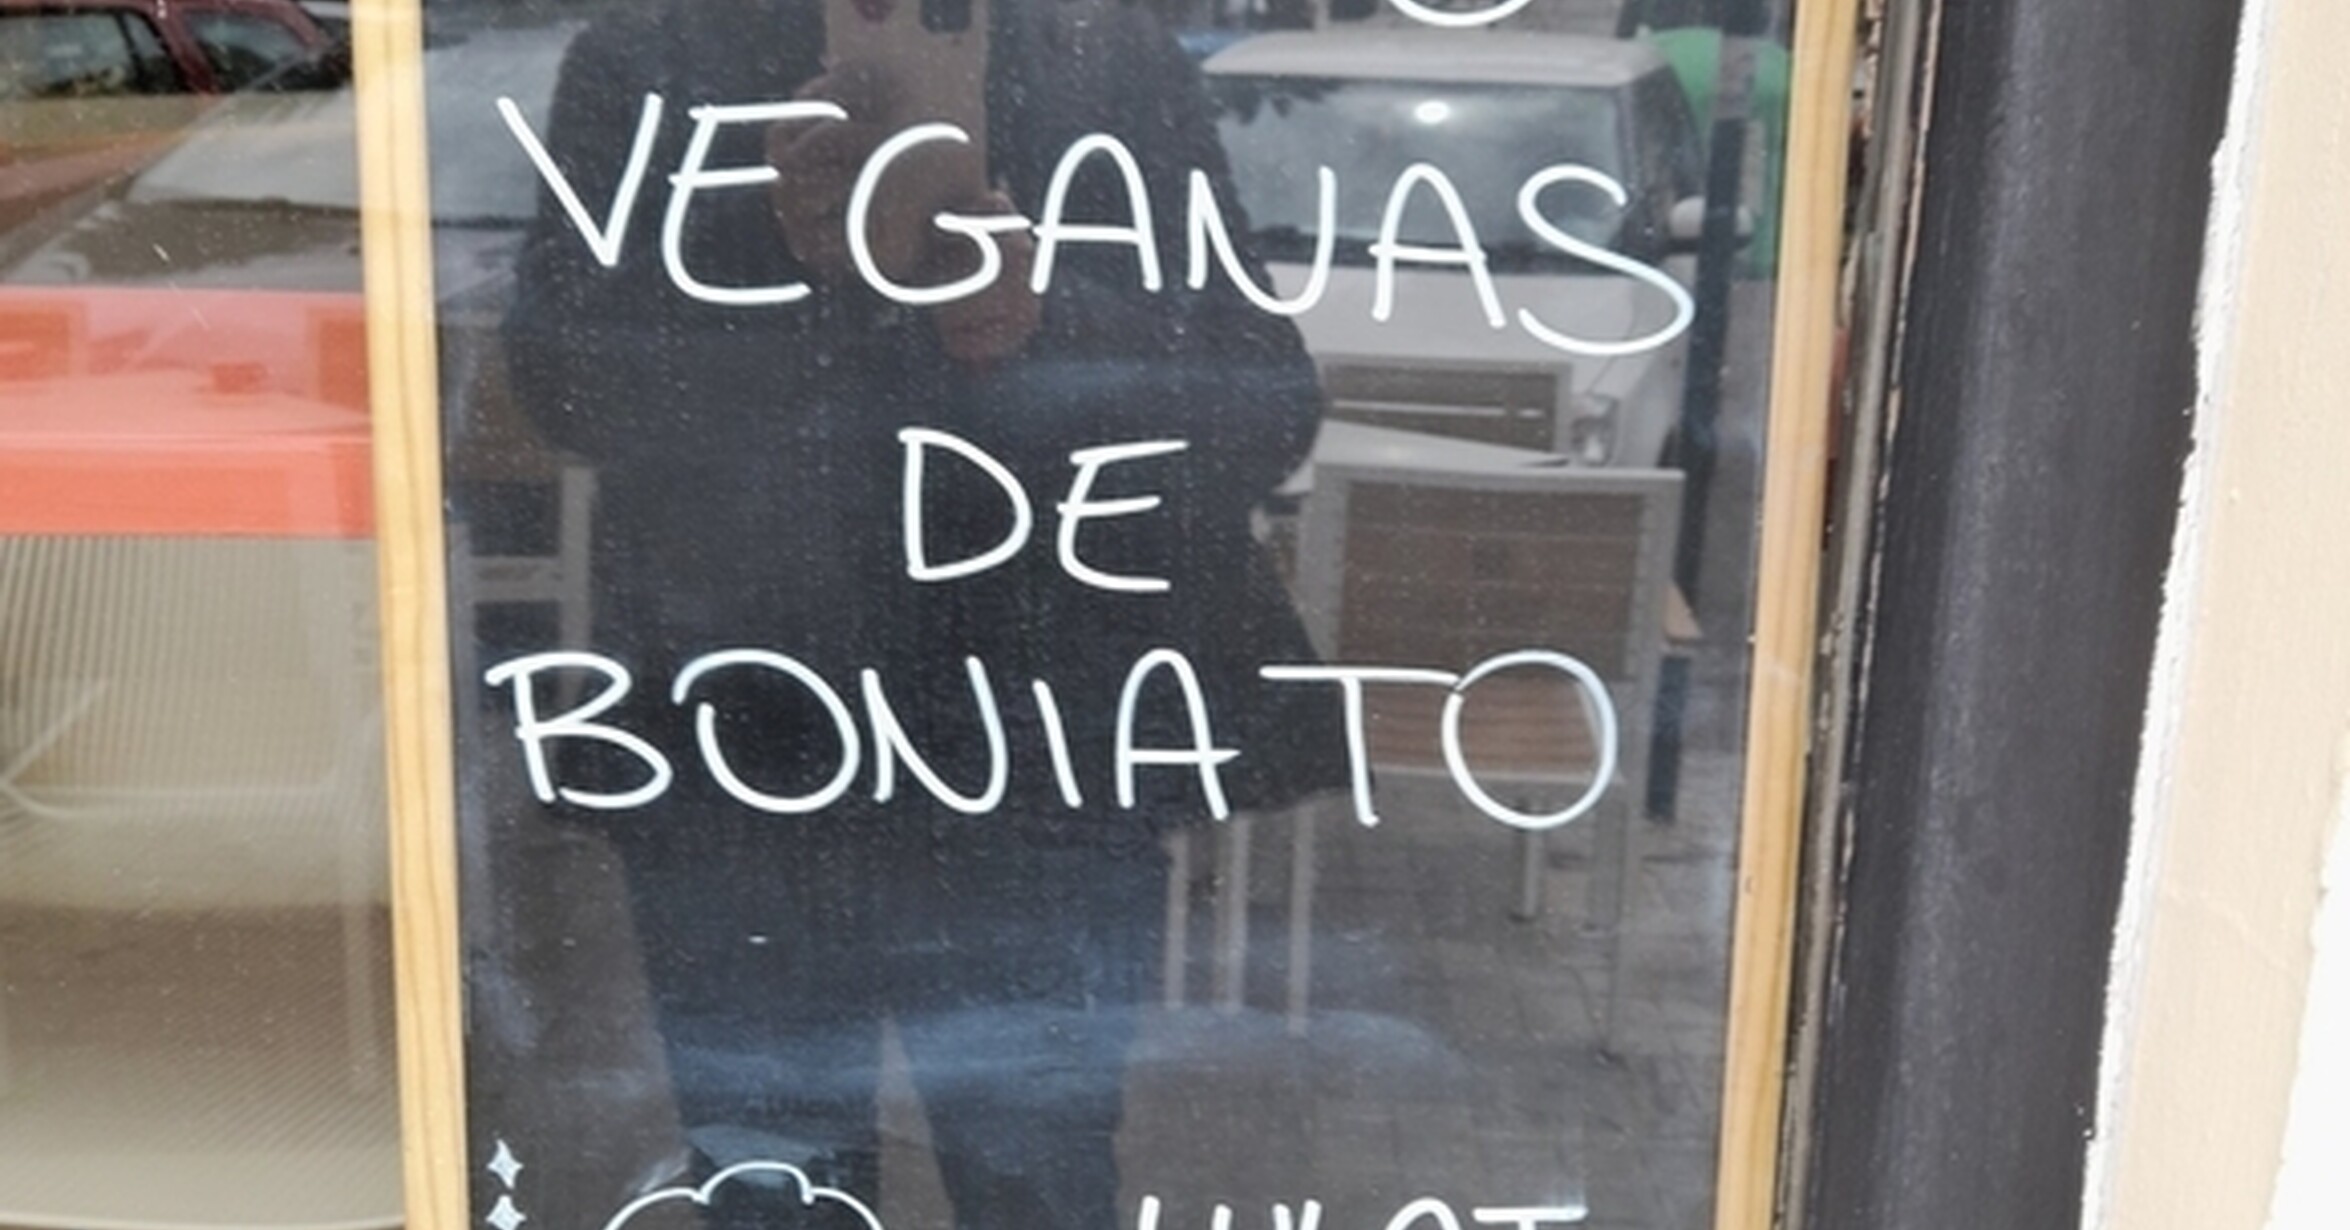 VEGANAS
DE
BONIATO